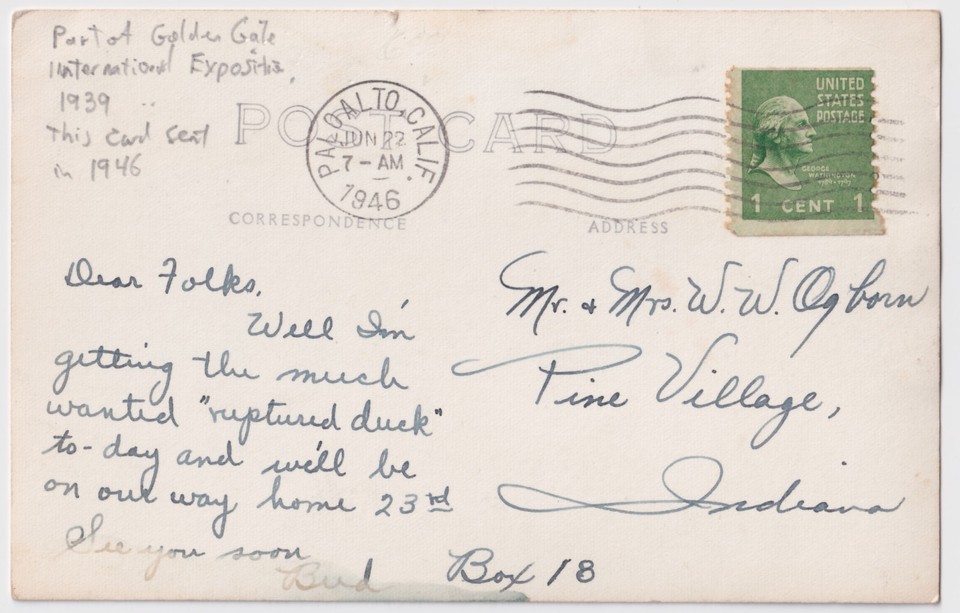 Part of Golden Gate
International Exposition,
1939
This card sent
in 1946
POST CARD
PALO ALTO, CALIF.
JUN 22
7-AM
1946
UNITED
STATES
POSTAGE
GEORGE
WASHINGTON
1789-1797
1 CENT 1
CORRESPONDENCE
ADDRESS
Dear Folks,
Well I'm
getting the much
wanted "ruptured duck"
to-day and we'll be
on our way home 23rd
See you soon
Bud
Mr. & Mrs. W. W. Ogborn
Pine Village,
Indiana
Box 18